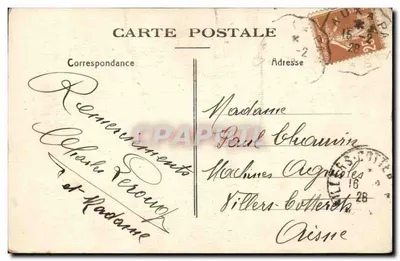 CARTE POSTALE
Correspondance
Adresse
Remerciements
Charles
et Madame
Madame
Paul Chauvin
Machines Agricoles
Villers-Cotterets
Aisne
VILLERS-COTTE
16
28